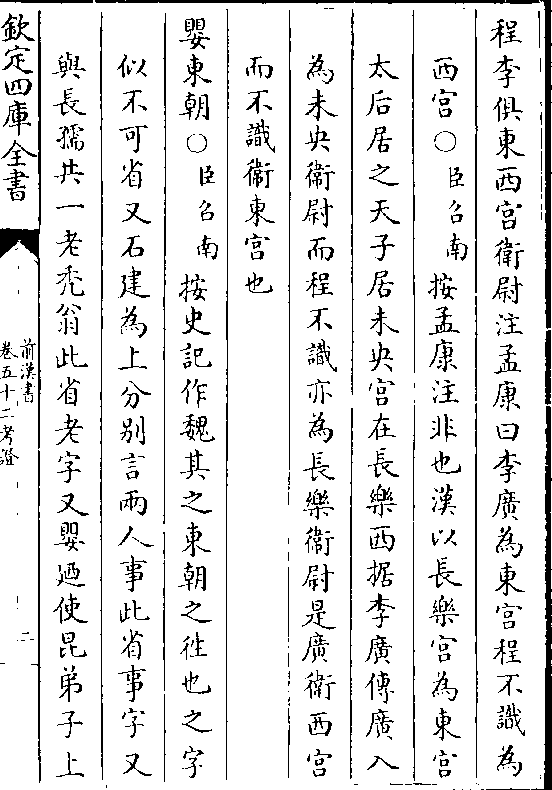 程李俱東西宮衛尉注孟康曰李廣為東宮程不識為
西宮○臣召南按孟康注非也漢以長樂宮為東宮
太后居之天子居未央宮在長樂西据李廣傳廣入
為未央衛尉而程不識亦為長樂衛尉是廣衛西宮
而不識衛東宮也
嬰東朝○臣召南按史記作魏其之東朝之徃也之字
似不可省又石建為上分別言兩人事此省事字又
與長孺共一老禿翁此省老字又嬰廼使昆弟子上
欽定四庫全書
前漢書
卷五十二考證
二